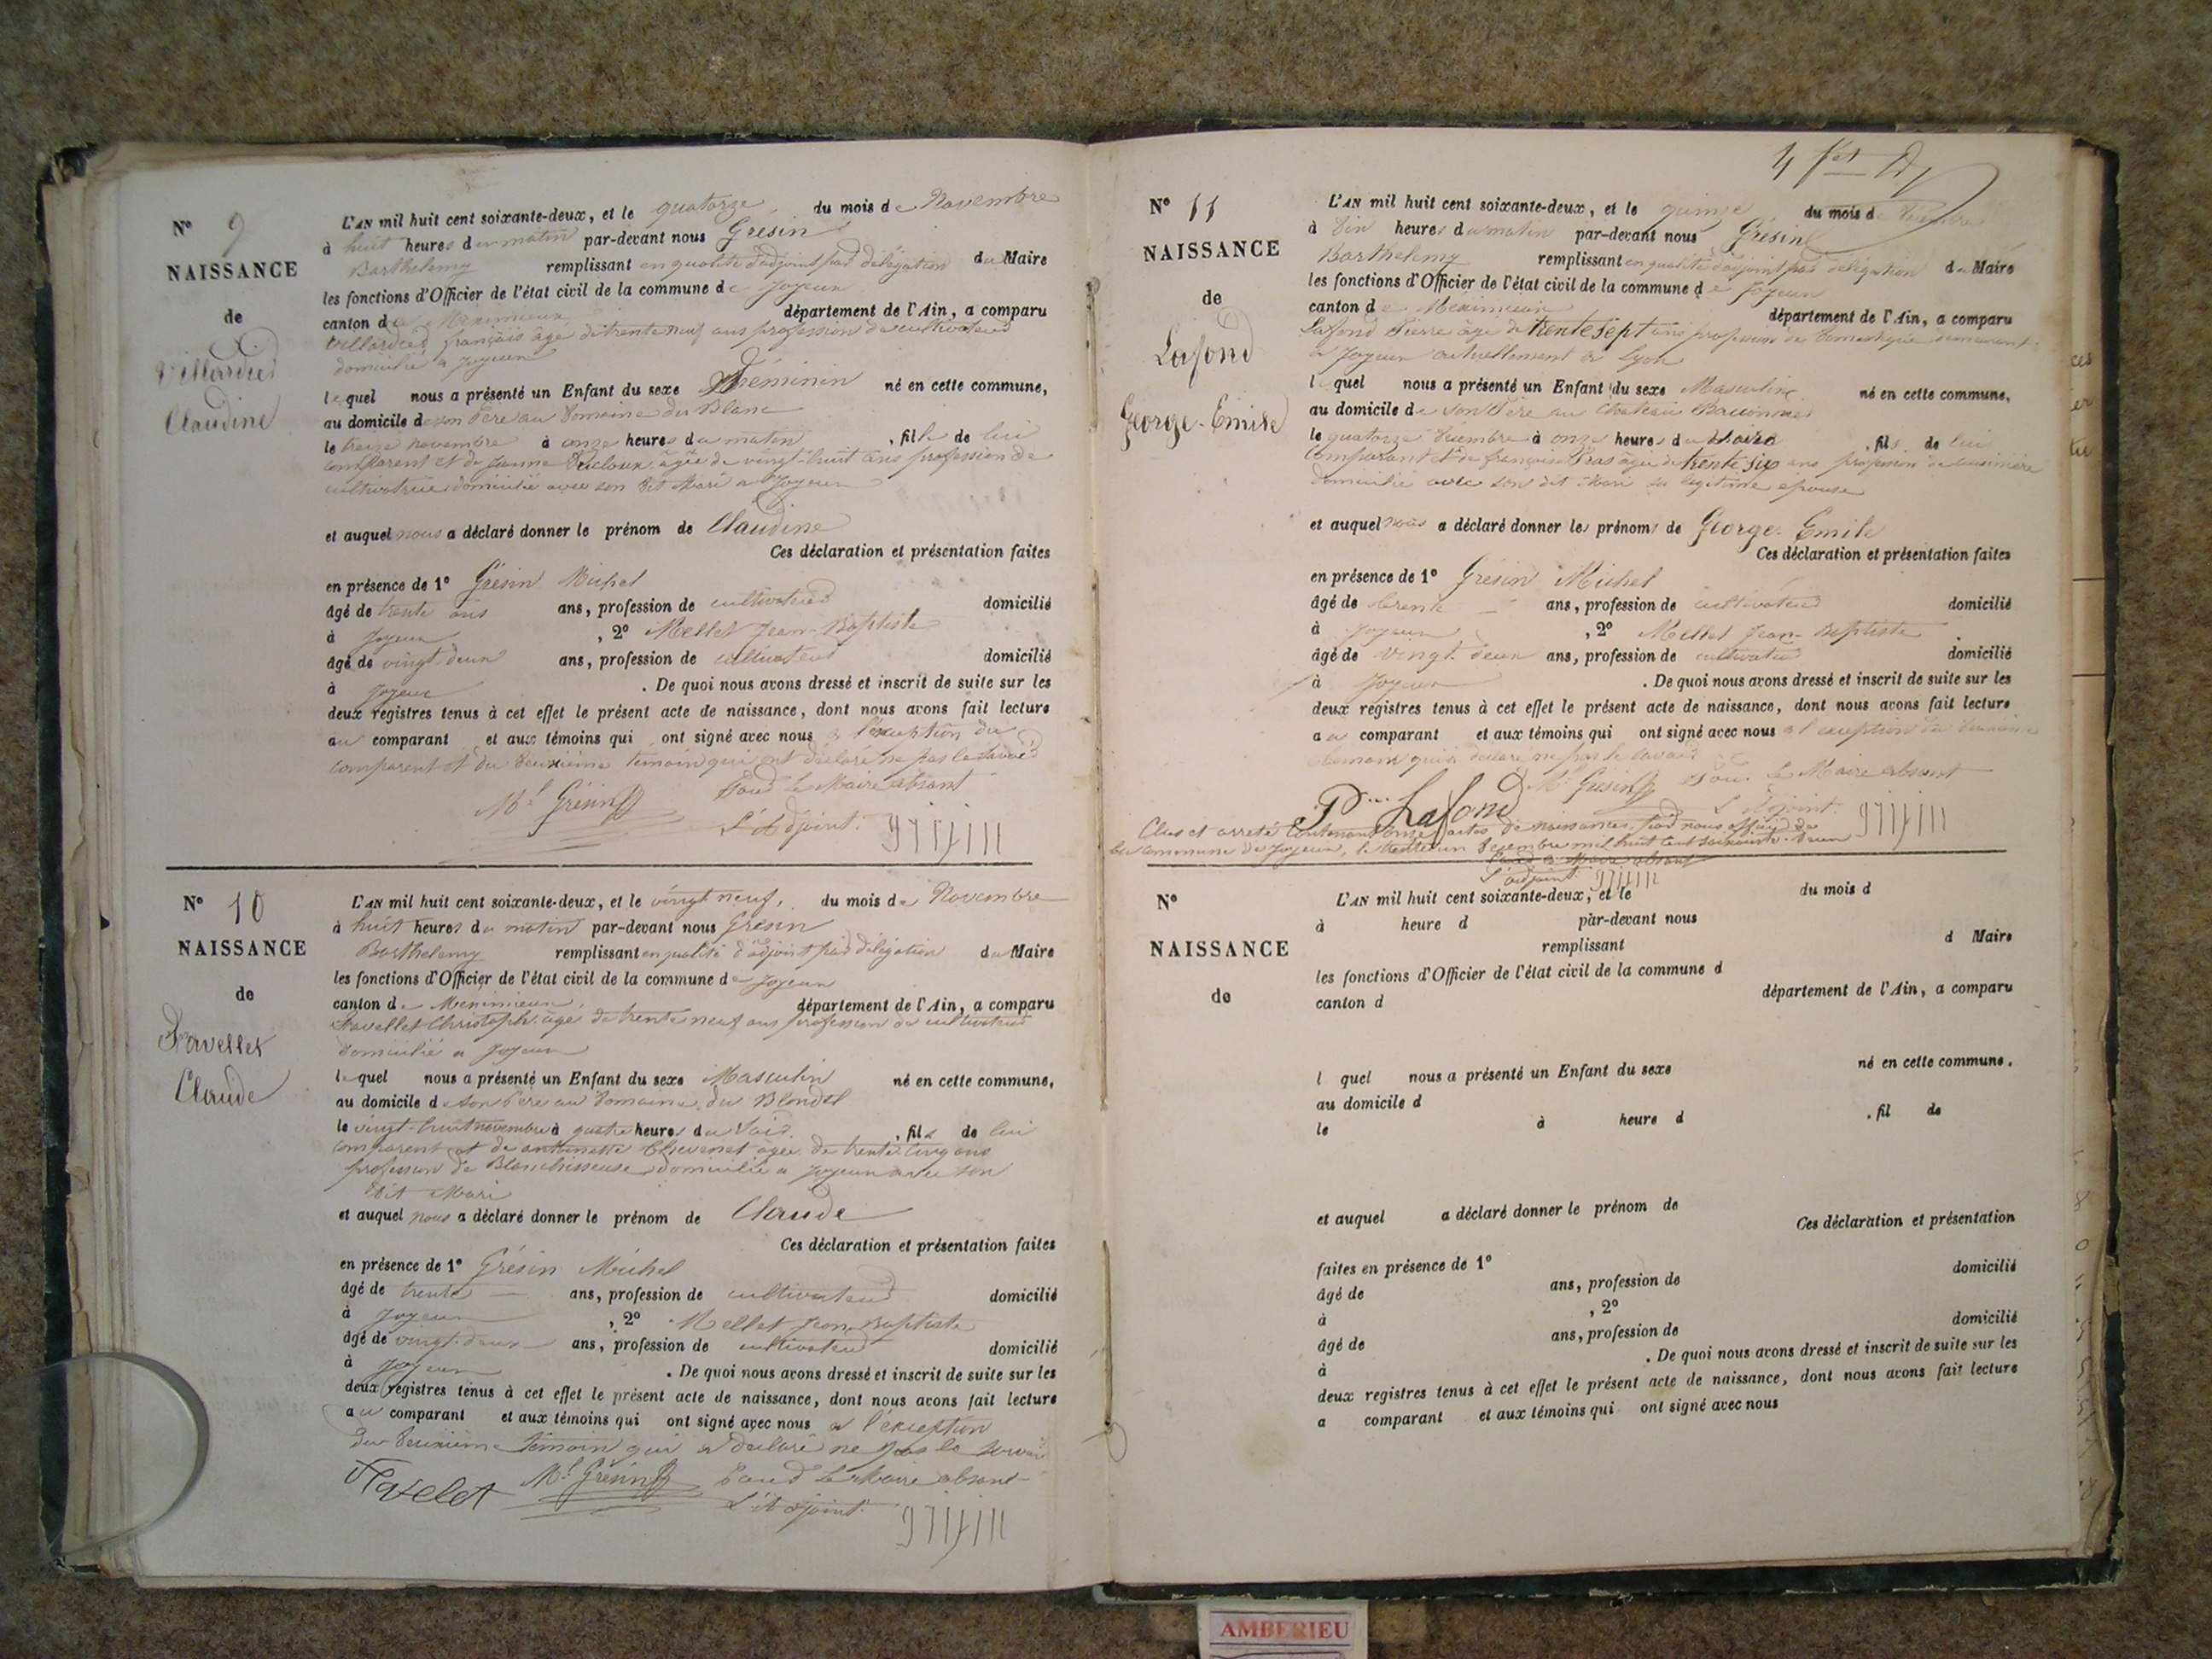 N° 9
NAISSANCE
de
Villardier
Claudine
L'AN mil huit cent soixante-deux, et le quatorze, du mois de Novembre
à huit heures du matin par-devant nous Grésin
Barthelemy remplissant en qualité d'adjoint par délégation du Maire
les fonctions d'Officier de l'état civil de la commune de Joyeux
canton de Meximieux département de l'Ain, a comparu
français âgé de trente neuf ans profession de cultivateur
domicilié a Joyeux
lequel nous a présenté un Enfant du sexe féminin né en cette commune,
au domicile de son Père au Domaine du Blanc
le treize novembre à onze heures du matin, fille de lui
comparent et de Jeanne âgée de vingt-huit ans profession de
cultivatrice domicilié avec son dit Mari a Joyeux
et auquel nous a déclaré donner le prénom de Claudine
Ces déclaration et présentation faites
en présence de 1° Grésin Michel
âgé de trente ans ans, profession de cultivateur domicilié
à Joyeux, 2° Mellet Jean-Baptiste
âgé de vingt-deux ans, profession de cultivateur domicilié
à Joyeux. De quoi nous avons dressé et inscrit de suite sur les
deux registres tenus à cet effet le présent acte de naissance, dont nous avons fait lecture
au comparant et aux témoins qui ont signé avec nous a l'exception du
comparent et du deuxième témoin qui ont déclaré ne pas le savoir
Ml Grésin Pour le Maire absant
L'Adjoint
N° 10
NAISSANCE
de
Favellet
Claude
L'AN mil huit cent soixante-deux, et le vingt neuf, du mois de Novembre
à huit heures du matin par-devant nous Grésin
Barthelemy remplissant en qualité d'adjoint par délégation du Maire
les fonctions d'Officier de l'état civil de la commune de Joyeux
canton de Meximieux, département de l'Ain, a comparu
Favellet Christophe âgé de trente neuf ans profession de cultivateur
domicilié a Joyeux
lequel nous a présenté un Enfant du sexe Masculin né en cette commune,
au domicile de son Père au Domaine du Blondel
le vingt-huit novembre à quatre heures du soir, fils de lui
comparent et de antoinette Chevenet âgée de trente cinq ans
profession de Blanchisseuse domicilié a Joyeux avec son
dit Mari
et auquel nous a déclaré donner le prénom de Claude
Ces déclaration et présentation faites
en présence de 1° Grésin Michel
âgé de trente ans, profession de cultivateur domicilié
à Joyeux, 2° Mellet Jean Baptiste
âgé de vingt-deux ans, profession de cultivateur domicilié
à Joyeux. De quoi nous avons dressé et inscrit de suite sur les
deux registres tenus à cet effet le présent acte de naissance, dont nous avons fait lecture
au comparant et aux témoins qui ont signé avec nous a l'exception
du deuxième témoin qui a déclaré ne pas le savoir
Ml Grésin Pour le Maire absant
L'Adjoint
N° 11
NAISSANCE
de
Lafond
George-Emile
L'AN mil huit cent soixante-deux, et le quinze du mois de
à dix heures du matin par-devant nous Grésin
Barthelemy remplissant en qualité d'adjoint par délégation du Maire
les fonctions d'Officier de l'état civil de la commune de Joyeux
canton de Meximieux département de l'Ain, a comparu
Lafond Pierre âgé de trente sept ans profession de domestique demeurant
a Joyeux actuellement a Lyon
lequel nous a présenté un Enfant du sexe Masculin né en cette commune,
au domicile de son Père au Chateau
le quatorze décembre à onze heures du soir, fils de lui
Comparant et de françoise Pras âgée de trente six ans profession de cuisinière
domicilié avec son dit Mari sa légitime épouse
et auquel nous a déclaré donner les prénoms de George-Emile
Ces déclaration et présentation faites
en présence de 1° Grésin Michel
âgé de trente ans, profession de cultivateur domicilié
à Joyeux, 2° Mellet Jean-Baptiste
âgé de vingt-deux ans, profession de cultivateur domicilié
à Joyeux. De quoi nous avons dressé et inscrit de suite sur les
deux registres tenus à cet effet le présent acte de naissance, dont nous avons fait lecture
au comparant et aux témoins qui ont signé avec nous a l'exception du deuxième
témoin qui a déclaré ne pas le savoir
Lafond Ml Grésin Pour le Maire absant
L'Adjoint
Clos et arreté contenant onze actes de naissances par nous officier de
la commune de Joyeux, le trente un Décembre mil huit cent soixante-deux
Pour le Maire absant
L'adjoint
N°
NAISSANCE
de
L'AN mil huit cent soixante-deux, et le du mois d
à heure d par-devant nous
remplissant d Maire
les fonctions d'Officier de l'état civil de la commune d
canton d département de l'Ain, a comparu
l quel nous a présenté un Enfant du sexe né en cette commune,
au domicile d
le à heure d , fil de
et auquel a déclaré donner le prénom de
Ces déclaration et présentation
faites en présence de 1°
âgé de ans, profession de domicilié
à , 2°
âgé de ans, profession de domicilié
à . De quoi nous avons dressé et inscrit de suite sur les
deux registres tenus à cet effet le présent acte de naissance, dont nous avons fait lecture
a comparant et aux témoins qui ont signé avec nous
AMBERIEU